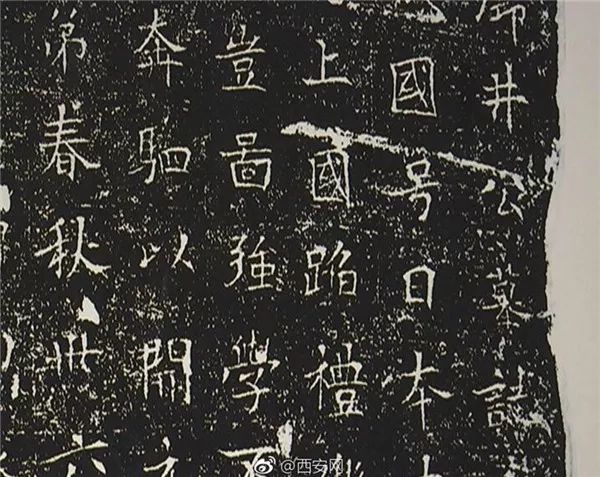 御井公墓誌
國号日本
上國蹈禮
豈圖強學不
奔駟以開
弟春秋卅六
@西安网